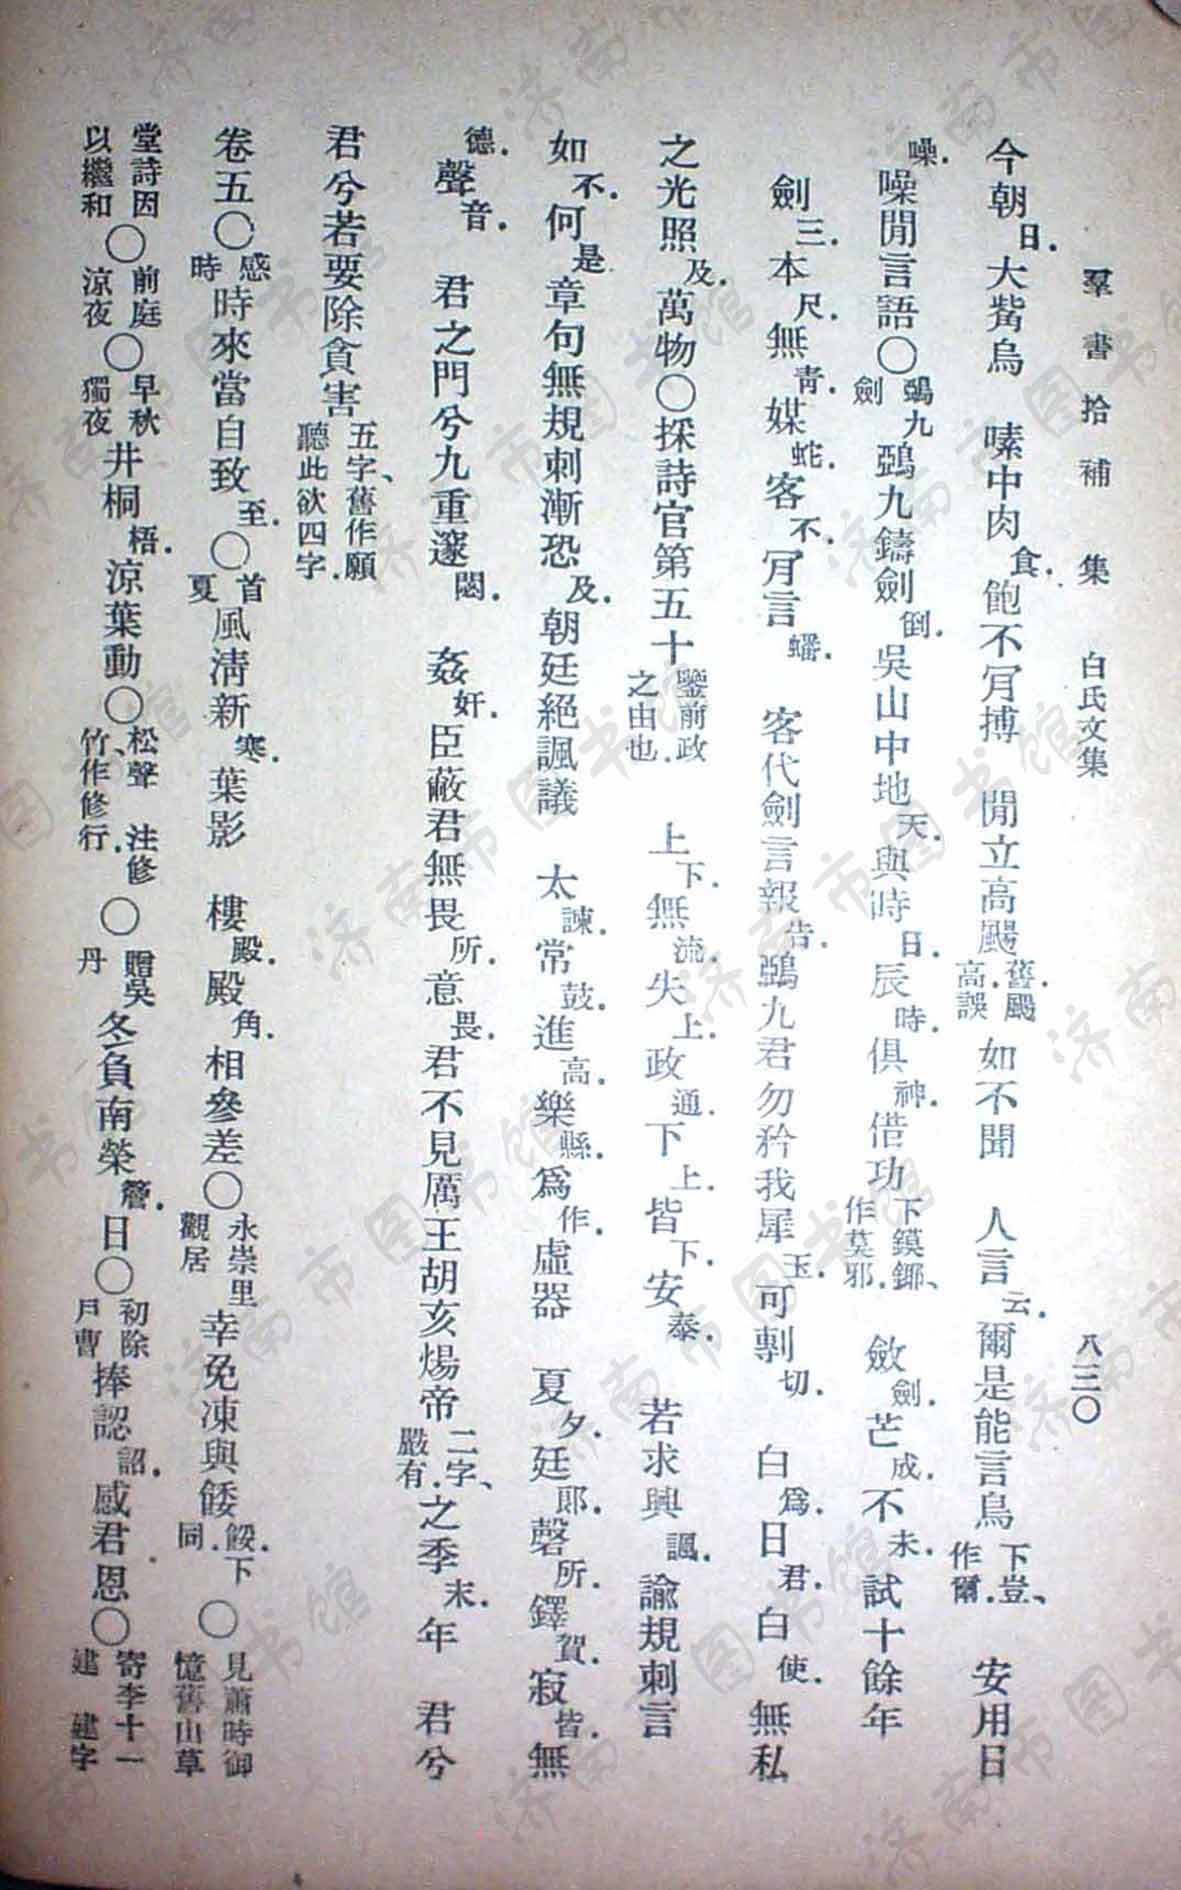 羣書拾補　集　白氏文集　八三〇
今朝日.大觜烏　嗉中肉食.飽不肎搏　閒立高颺舊.颺高.誤如不聞　人言云.爾是能言鳥下豈、作爾.　安用日
噪.噪閒言語〇鵶九劍鵶九鑄劍倒.吳山中地天.與時日.辰時.俱神.借功下鏌鎁、作莫邪.　斂劍.芒成.不未.試十餘年
劍三.本尺.無青.媒蛇.客不.肎言蟠.　客代劍言報告.鵶九君勿矜我犀玉.可剸切.　白爲.日君.白使.無私
之光照及.萬物〇採詩官第五十鑒前政之由也.　上下.無流.失上.政通.下上.皆下.安泰.　若求興諷.諭規刺言
如不.何是章句無規刺漸恐及.朝廷絕諷議　太諫.常鼓.進高.樂縣.爲作.虛器　夏夕.廷郎.磬所.鐸賀.寂皆.無
德.聲音.　君之門兮九重邃閟.　姦奸.臣蔽君無畏所.意畏.君不見厲王胡亥煬帝二字、嚴有.之季末.年　君兮
君兮若要除貪害五字、舊作願聽此欲四字.
卷五〇感時時來當自致至.〇首夏風清新寒.葉影　樓殿.殿角.相參差〇永崇里觀居幸免凍與餒餒.下同.〇見蕭時御憶舊山草
堂詩因以繼和〇前庭涼夜〇早秋獨夜井桐梧.涼葉動〇松聲　注修竹、作修行.〇贈吳丹冬負南榮簷.日〇初除戶曹捧認詔.感君恩〇寄李十一建　建字